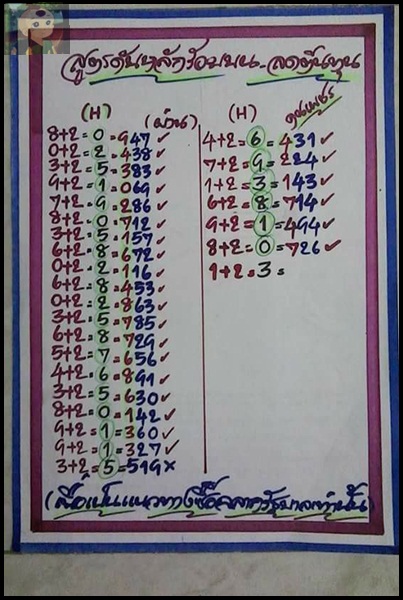 สูตรดับหลักร้อยบน - ลดต้นทุน
(H) (ผ่าน)
8+2=0=947✓
0+2=2=438✓
3+2=5=383✓
9+2=1=069✓
7+2=9=286✓
8+2=0=712✓
3+2=5=157✓
6+2=8=672✓
0+2=2=116✓
6+2=8=453✓
0+2=2=863✓
3+2=5=785✓
6+2=8=729✓
5+2=7=656✓
4+2=6=891✓
3+2=5=630✓
8+2=0=142✓
9+2=1=360✓
9+2=1=327✓
3+2=5=519×
(H)
4+2=6=431✓
7+2=9=224✓
1+2=3=143✓
6+2=8=714✓
9+2=1=494✓
8+2=0=726✓
1+2=3=
(สื่อเป็นแนวทางซื้อสลากรัฐบาลเท่านั้น)